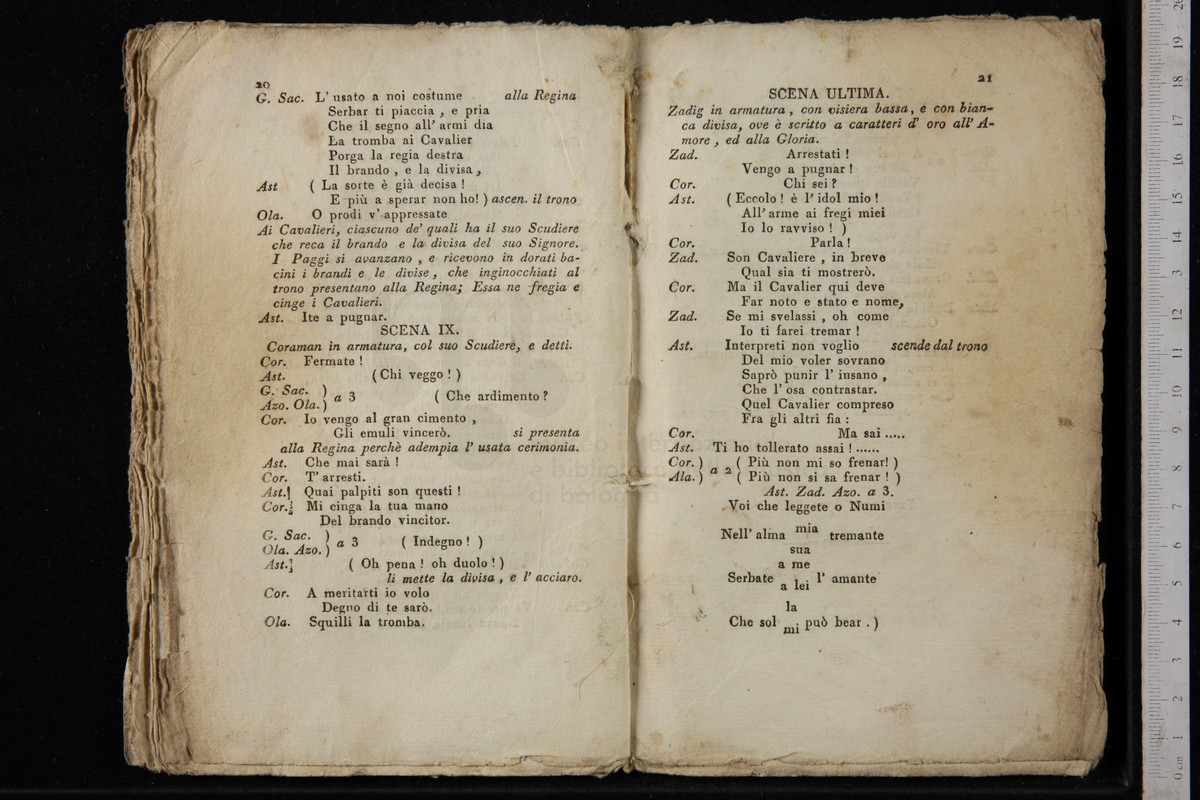 20
G. Sac. L' usato a noi costume alla Regina
Serbar ti piaccia , e pria
Che il segno all' armi dia
La tromba ai Cavalier
Porga la regia destra
Il brando , e la divisa ,
Ast ( La sorte è già decisa !
E più a sperar non ho! ) ascen. il trono
Ola. O prodi v' appressate
Ai Cavalieri, ciascuno de' quali ha il suo Scudiere
che reca il brando e la divisa del suo Signore.
I Paggi si avanzano , e ricevono in dorati ba-
cini i brandi e le divise , che inginocchiati al
trono presentano alla Regina; Essa ne fregia e
cinge i Cavalieri.
Ast. Ite a pugnar.
SCENA IX.
Coraman in armatura, col suo Scudiere, e detti.
Cor. Fermate !
Ast. (Chi veggo ! )
G. Sac. )
Azo. Ola. ) a 3 ( Che ardimento ?
Cor. Io vengo al gran cimento ,
Gli emuli vincerò. si presenta
alla Regina perchè adempia l' usata cerimonia.
Ast. Che mai sarà !
Cor. T' arresti.
Ast. Quai palpiti son questi !
Cor. Mi cinga la tua mano
Del brando vincitor.
G. Sac. )
Ola. Azo. ) a 3 ( Indegno ! )
Ast. ( Oh pena ! oh duolo ! )
li mette la divisa , e l' acciaro.
Cor. A meritarti io volo
Degno di te sarò.
Ola. Squilli la tromba.
21
SCENA ULTIMA.
Zadig in armatura , con visiera bassa , e con bian-
ca divisa, ove è scritto a caratteri d' oro all' A-
more , ed alla Gloria.
Zad. Arrestati !
Vengo a pugnar !
Cor. Chi sei ?
Ast. ( Eccolo ! è l' idol mio !
All' arme ai fregi miei
Io lo ravviso ! )
Cor. Parla !
Zad. Son Cavaliere , in breve
Qual sia ti mostrerò.
Cor. Ma il Cavalier qui deve
Far noto e stato e nome,
Zad. Se mi svelassi , oh come
Io ti farei tremar !
Ast. Interpreti non voglio scende dal trono
Del mio voler sovrano
Saprò punir l' insano ,
Che l' osa contrastar.
Quel Cavalier compreso
Fra gli altri fia :
Cor. Ma sai .....
Ast. Ti ho tollerato assai ! ......
Cor. ) a 2 ( Più non mi so frenar! )
Ala. ) ( Più non si sa frenar ! )
Ast. Zad. Azo. a 3.
Voi che leggete o Numi
Nell' alma mia tremante
sua
a me
Serbate a lei l' amante
la
Che sol mi può bear . )